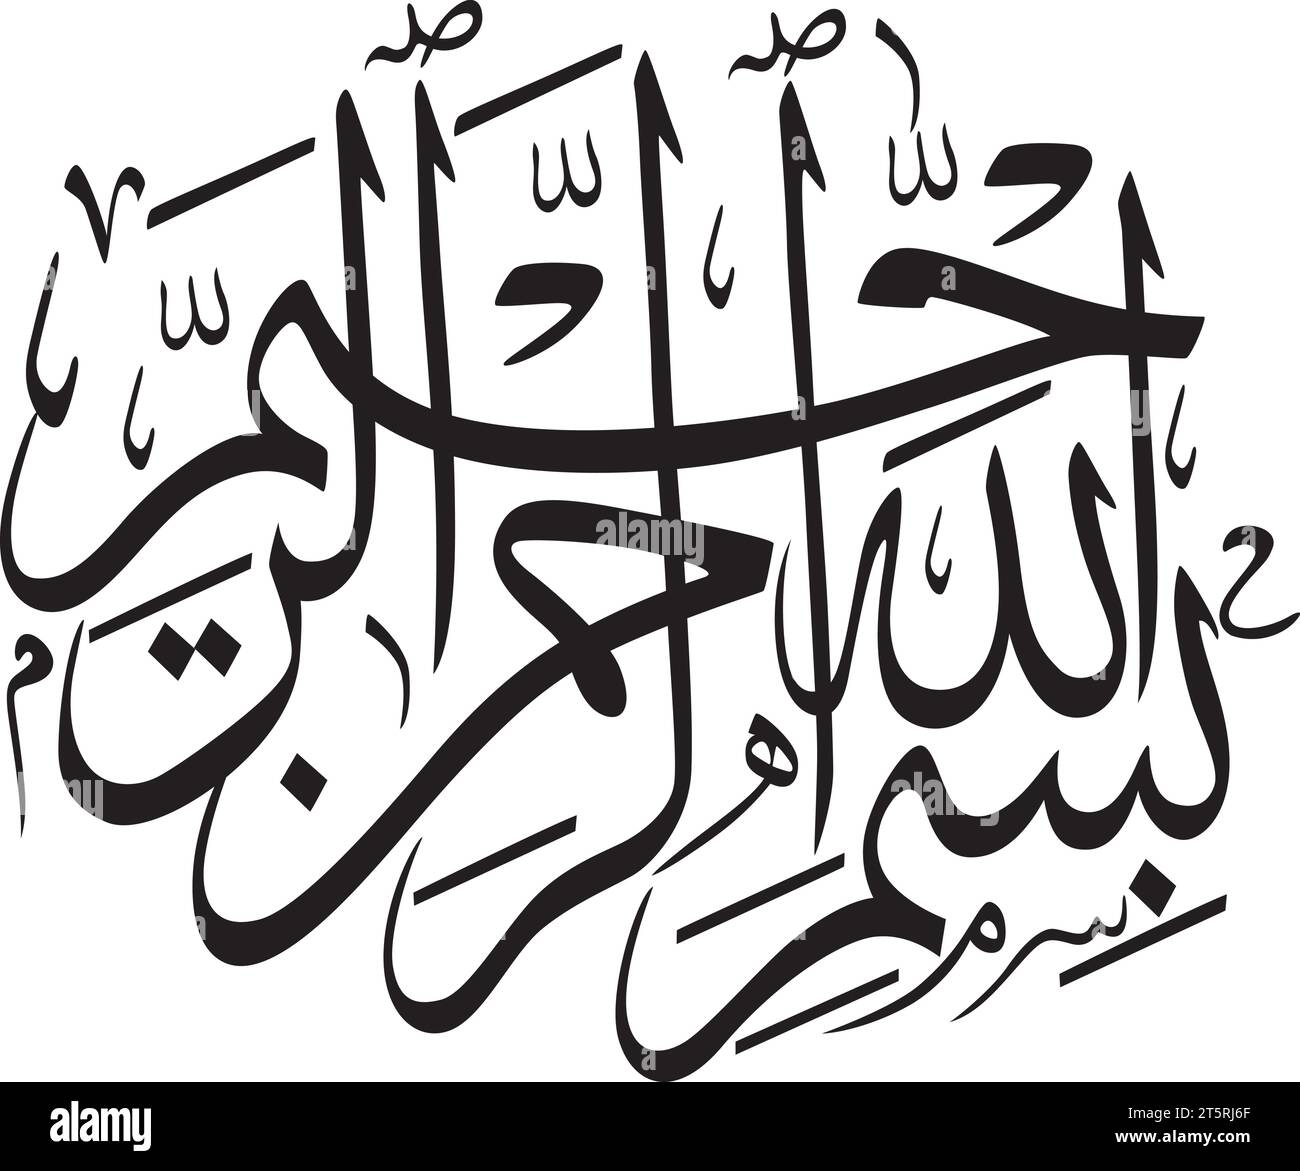 بِسْمِ اللَّهِ الرَّحْمَٰنِ الرَّحِيمِ
alamy
Image ID: 2T5RJ6F
www.alamy.com